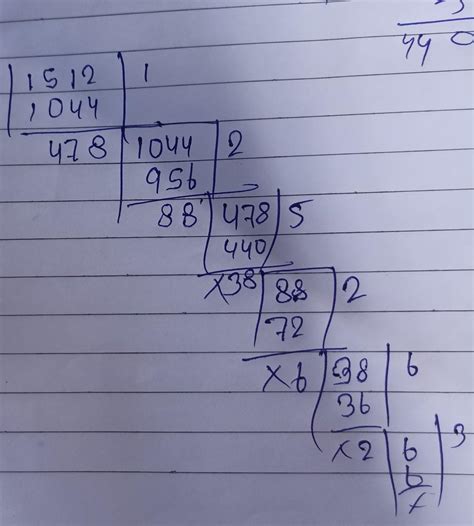 440
1512 | 1
1044
478 | 1044 | 2
956
88 | 478 | 5
440
x38 | 88 | 2
72
x6 | 38 | 6
36
x2 | 6 | 3
6
x